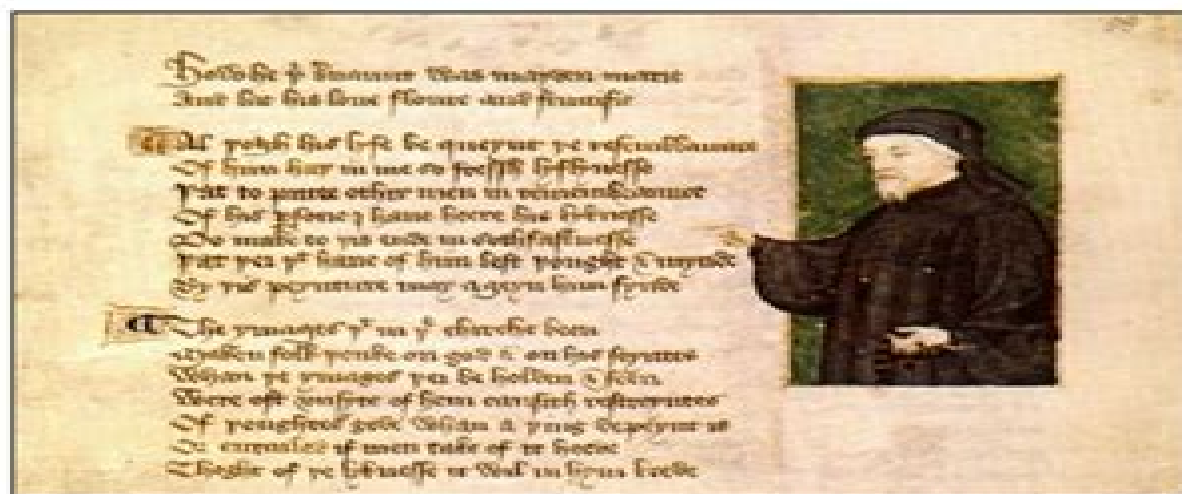 How he þi servaunt was mayden marie
And lat his love floure and fructifie
Al þogh his lyfe be queynt þe resemblaunce
Of him haþ in me so fressh lyflynesse
Þat to putte othir men in remembraunce
Of his psone I have heere his lyknesse
Do make to þis ende in sothfastnesse
Þat þei þt have of him lest þought & mynde
By þis peynture may ageyn him fynde
The ymages þt in þe chirche been
Maken folk þenke on god & on his seyntes
Whan þe ymages þei be holden & seen
Were oft unsyte of hem causith restreyntes
Of þoughtes gode whan a þing depeynt is
Or entailed if men take of it heede
Thoght of þe lyknesse it wil in hym brede